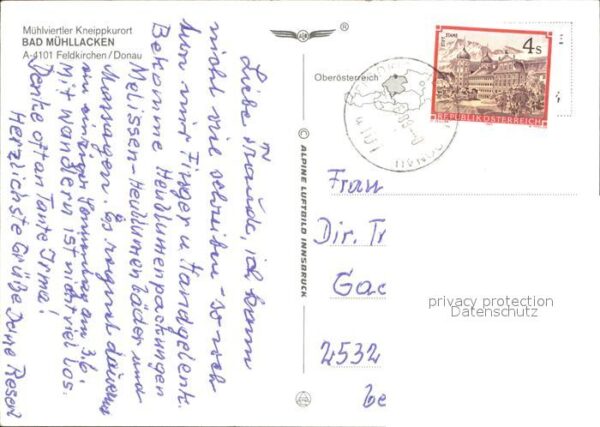 Mühlviertler Kneippkurort
BAD MÜHLLACKEN
A-4101 Feldkirchen/Donau
Liebe Traude, ich kann
nicht viel schreiben - so weh
tun mir Finger u. Handgelenk.
Bekomme Heublumenpackungen
Melissen-Heublumenbäder und
Massagen. Es regnet dauernd
am einzigen Sonnentag am 3.6.
Mit Wandlern ist nicht viel los.
Denke oft an Tante Irma!
Herzlichste Grüße Deine Reserl
© ALPINE LUFTBILD INNSBRUCK
®
Oberösterreich
4101
STIFT
4 S
REPUBLIK ÖSTERREICH
Frau
Dir. Tr
Gae
2532
be
privacy protection
Datenschutz